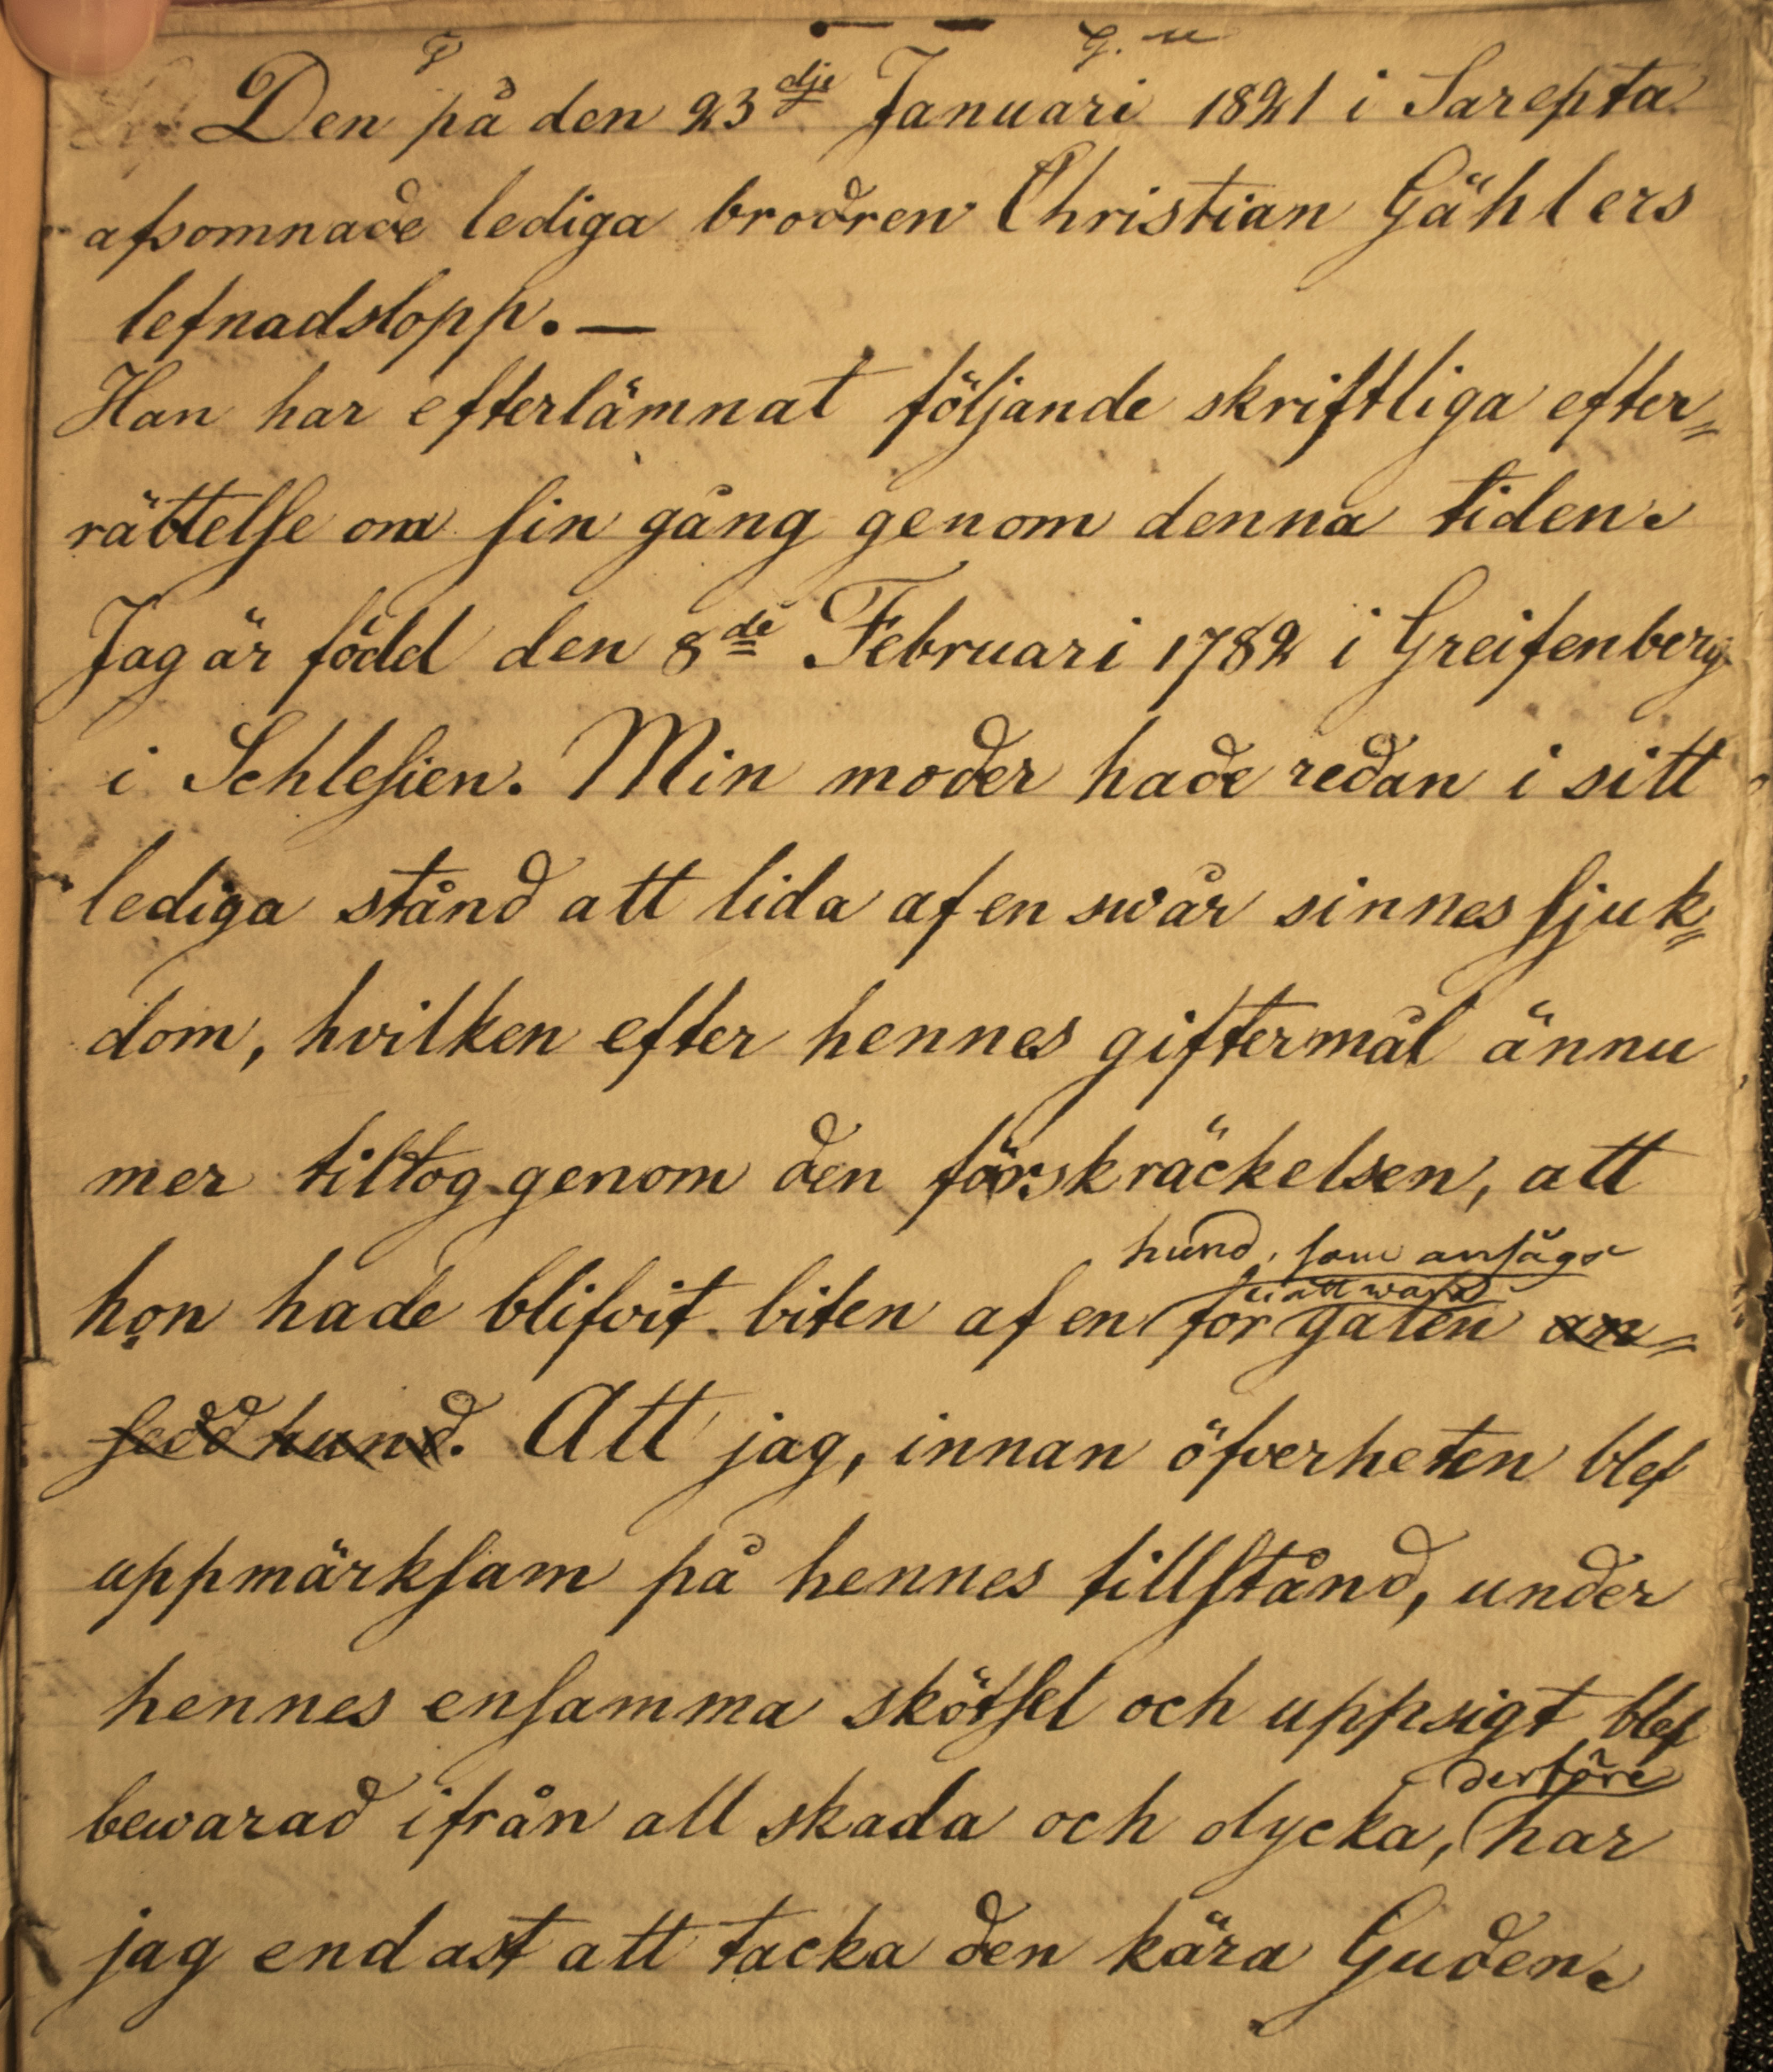 Den på den 23dje Januari 1821 i Sarepta
afsomnade lediga brodren Christian Gählers
lefnadslopp. —
Han har efterlämnat följande skriftliga efter=
rättelse om sin gång genom denna tiden.
Jag är född den 8de Februari 1782 i Greifenberg
i Schlesien. Min moder hade redan i sitt
lediga stånd att lida af en swår sinnessjuk=
dom, hvilken efter hennes giftermål ännu
mer tilltog genom den förskräckelsen, att
hund, som ansågs
att wara
hon hade blifvit biten af en för galen an=
sedd hund. Att jag, innan öfverheten blef
uppmärksam på hennes tillstånd, under
hennes ensamma skötsel och uppsigt blef
derföre
bewarad ifrån all skada och olycka, har
jag endast att tacka den kära Guden.